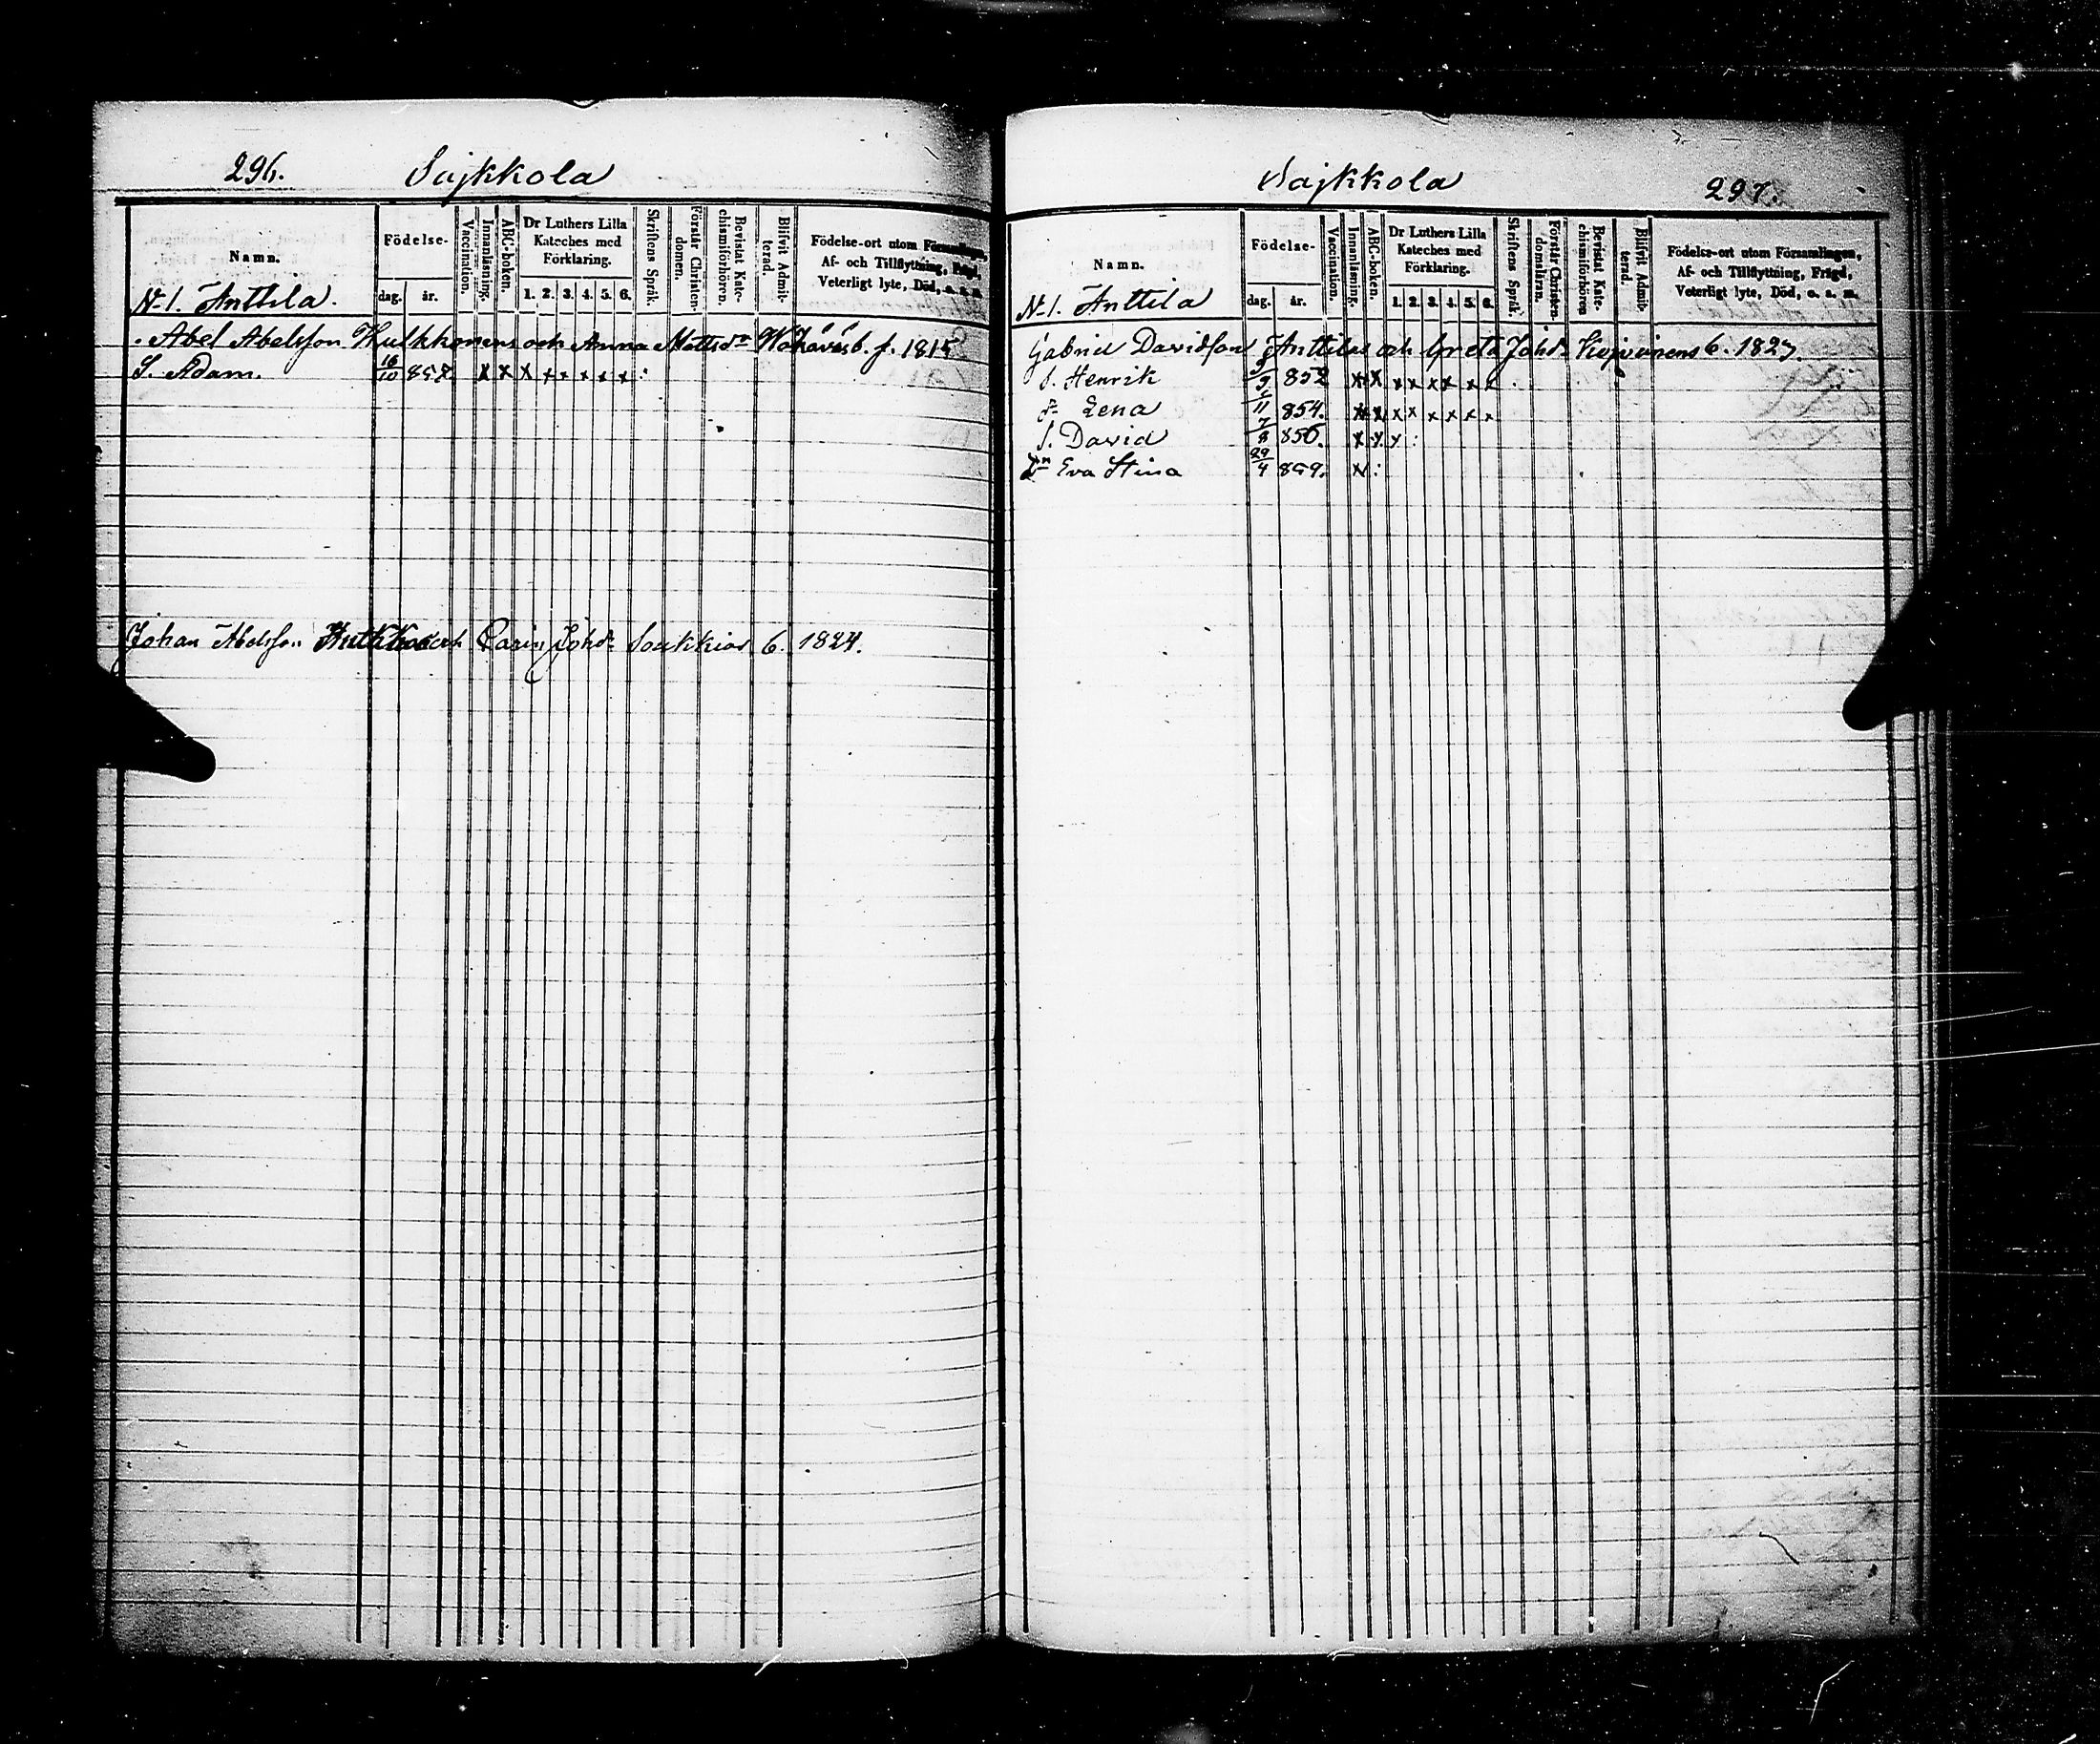 296. Sajkkola
Namn.
Födelse-
dag. år.
Vaccination.
Innanläsning.
ABC-boken.
Dr Luthers Lilla
Kateches med
Förklaring.
1. 2. 3. 4. 5. 6.
Skriftens Språk.
Förstår Christen-
domen.
Bevistat Kate-
chismiförhören.
Blifvit Admit-
terad.
Födelse-ort utom Församlingen,
Af- och Tillflyttning, Frägd,
Veterligt lyte, Död, o. s. m.
N. 1. Anttila.
Abel Abelsson Hulkkonens och Anna Mattsdr b. f. 1815
S. Adam. 16/10 857. x x x x x x x x :
Johan Abelsson och Carin Johdr Soukkias b. 1824.
Sajkkola 297.
Namn.
Födelse-
dag. år.
Vaccination.
Innanläsning.
ABC-boken.
Dr Luthers Lilla
Kateches med
Förklaring.
1. 2. 3. 4. 5. 6.
Skriftens Språk.
Förstår Christen-
domsläran.
Bevistat Kate-
chismiförhören
Blifvit Admit-
terad.
Födelse-ort utom Församlingen,
Af- och Tillflyttning, Frägd,
Veterligt lyte, Död, o. s. m.
N. 1. Anttila
Gabriel Davidsson Anttilas och Greta Johdr b. 1827.
S. Henrik 852 x x x x x x x x
dr Lena 11 854. x x x x x x x x
S. David 7/8 856. x x x :
Eva Stina 29/4 859. x :